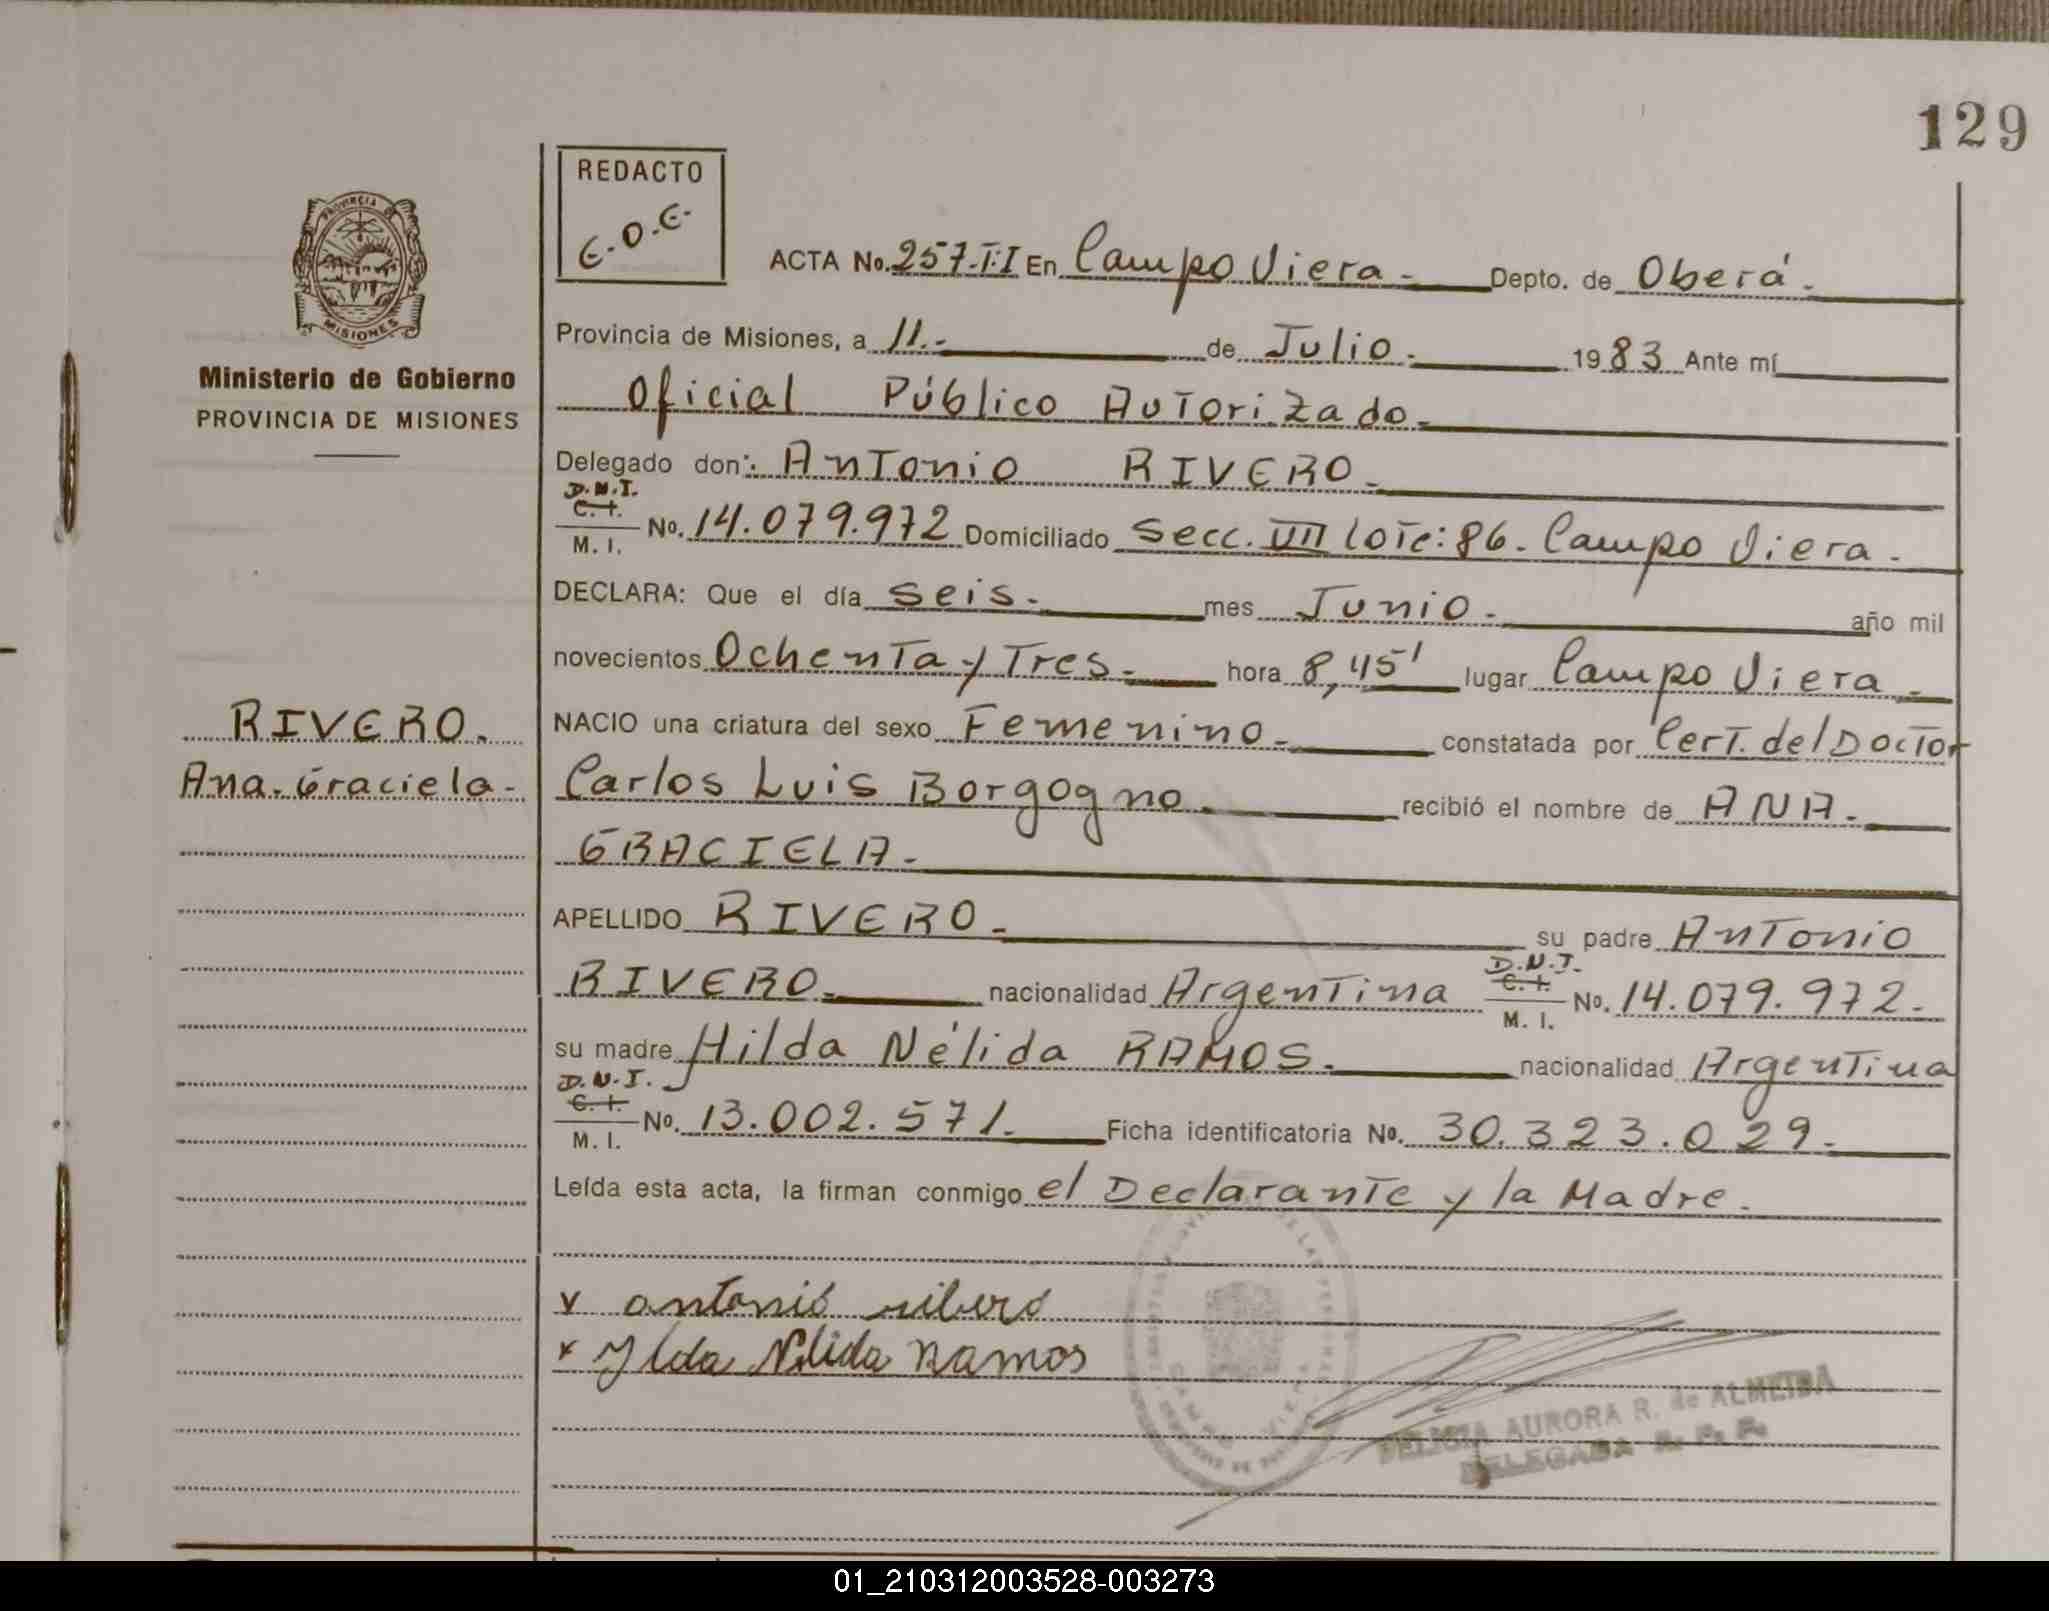 129
REDACTO
E.O.E.
PROVINCIA DE
MISIONES
Ministerio de Gobierno
PROVINCIA DE MISIONES
ACTA No. 257.T:I En Campo Viera.- Depto. de Oberá.
Provincia de Misiones, a 11.- de Julio. 1983 Ante mí
Oficial Público Autorizado.
Delegado don: Antonio RIVERO.
D.N.I.
C. I.
M. I. No. 14.079.972 Domiciliado Secc. VII lote: 86. Campo Viera.
DECLARA: Que el día seis.- mes Junio.- año mil
novecientos Ochenta y Tres.- hora 8,45' lugar Campo Viera.-
NACIO una criatura del sexo Femenino.- constatada por Cert. del Doctor
RIVERO.
Ana. Graciela-
Carlos Luis Borgogno. recibió el nombre de ANA.-
GRACIELA.-
APELLIDO RIVERO.- su padre Antonio
RIVERO.- nacionalidad Argentina D.N.I. C. I. M. I. No. 14.079.972.-
su madre Hilda Nélida RAMOS.- nacionalidad Argentina
D.N.I.
C. I.
M. I. No. 13.002.571. Ficha identificatoria No. 30.323.029.-
Leída esta acta, la firman conmigo el Declarante y la Madre.
x antonio ribero
x Ylda Nélida Ramos
FELICIA AURORA R. de ALMEIDA
DELEGADA R. P. P.
01_210312003528-003273